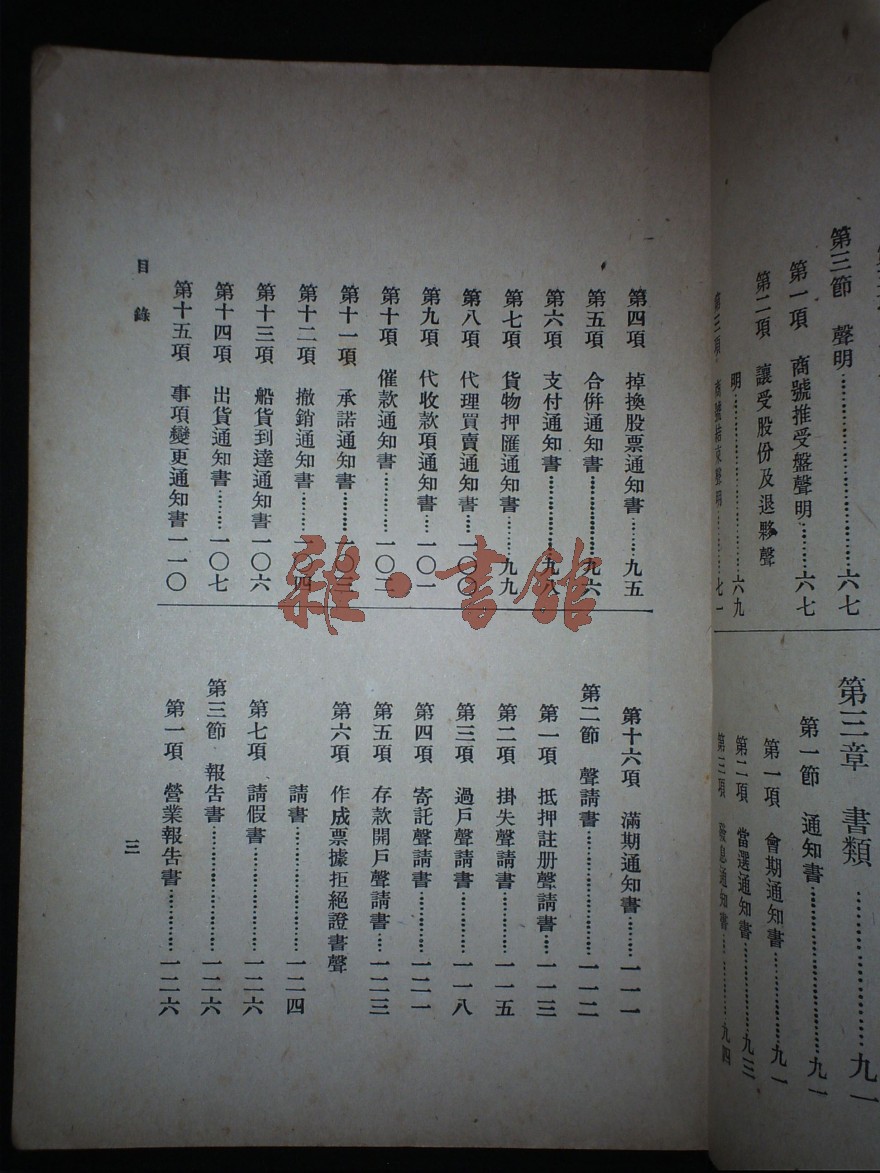 第三節　聲明……………六七
第一項　商號推受盤聲明…六七
第二項　讓受股份及退夥聲
明……………六九
第三項　商號結束聲明……七一
第三章　書類……………九一
第一節　通知書……………九一
第一項　會期通知書………九一
第二項　當選通知書………九三
第三項　發息通知書………九四
第四項　掉換股票通知書……九五
第五項　合併通知書…………九六
第六項　支付通知書…………九八
第七項　貨物押匯通知書……九九
第八項　代理買賣通知書…一〇〇
第九項　代收款項通知書…一〇一
第十項　催款通知書………一〇二
第十一項　承諾通知書……一〇三
第十二項　撤銷通知書……一〇四
第十三項　船貨到達通知書一〇六
第十四項　出貨通知書……一〇七
第十五項　事項變更通知書一一〇
第十六項　滿期通知書……一一一
第二節　聲請書……………一一二
第一項　抵押註册聲請書…一一三
第二項　掛失聲請書………一一五
第三項　過戶聲請書………一一八
第四項　寄託聲請書………一二一
第五項　存款開戶聲請書…一二三
第六項　作成票據拒絕證書聲
請書……………一二四
第七項　請假書……………一二六
第三節　報告書……………一二六
第一項　營業報告書………一二六
目錄
三
雜·書館